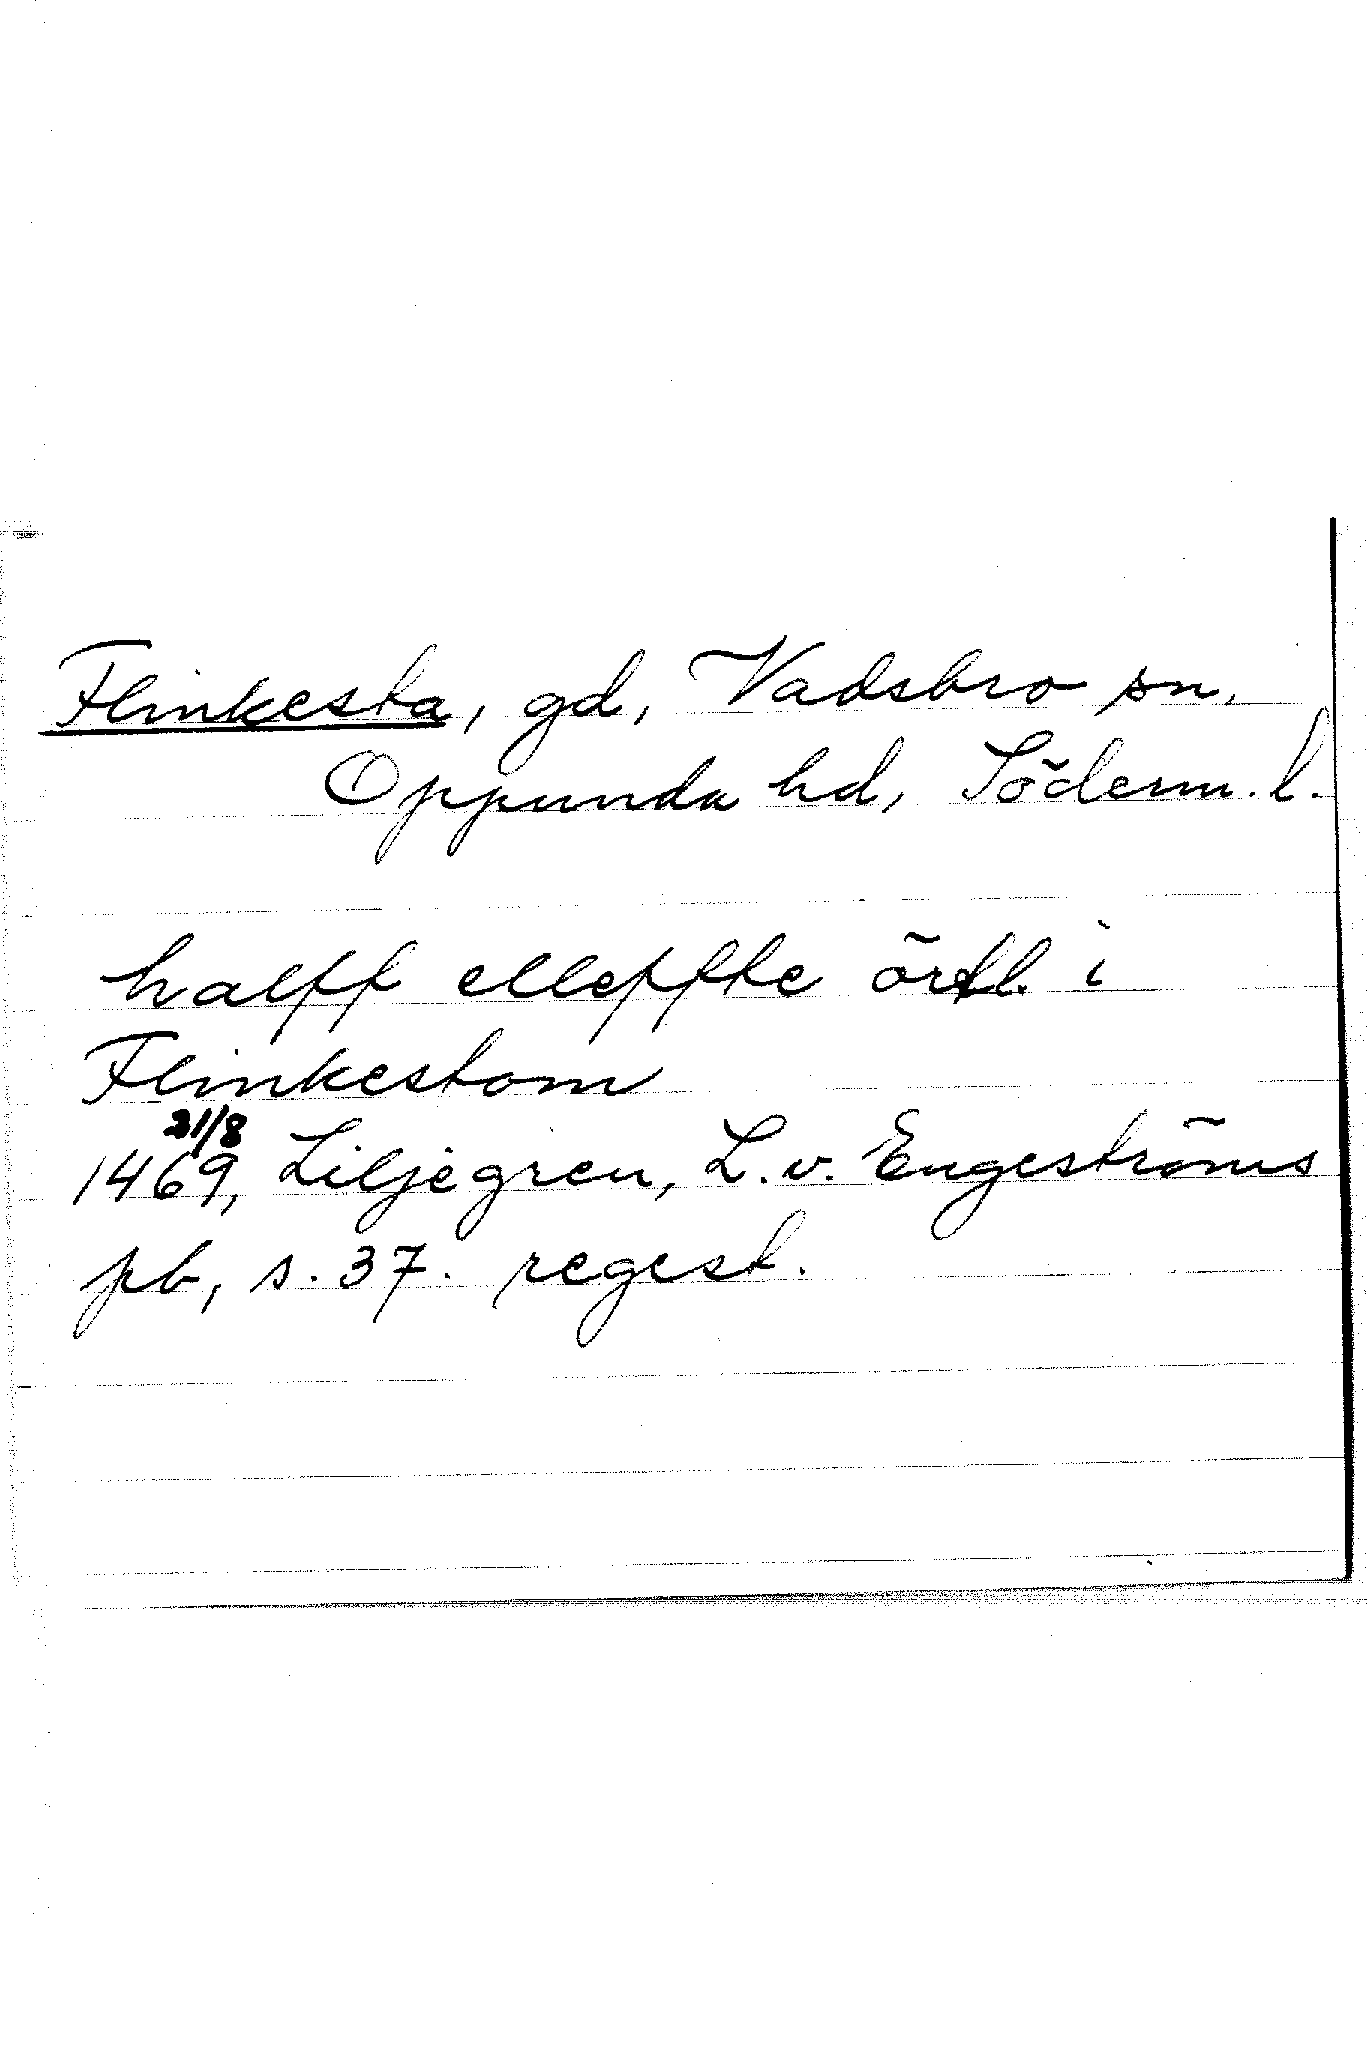 Flinkesta, gd, Vadsbro sn,
Oppunda hd, Söderm. l.
halff elleffte örtl. i
Flinkestom
21/8
1469, Liljegren, L. v. Engeströms
pb, s. 37. regest.